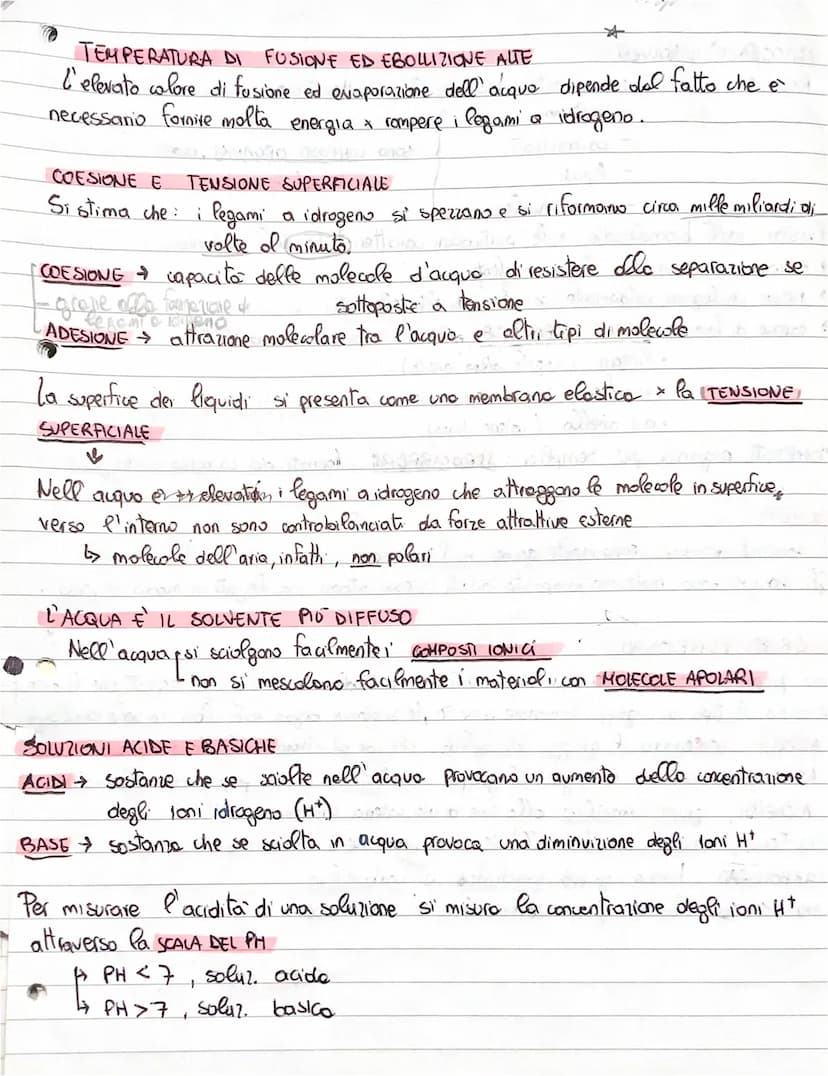 TEMPERATURA DI FUSIONE ED EBOLLIZIONE ALTE
L'elevato calore di fusione ed evaporazione dell'acqua dipende dal fatto che è
necessario fornire molta energia x rompere i legami a idrogeno.
COESIONE E TENSIONE SUPERFICIALE
Si stima che: i legami a idrogeno si spezzano e si riformano circa mille miliardi di
volte al minuto.
COESIONE → capacità delle molecole d'acqua di resistere alla separazione se
sottoposte a tensione
- grazie alla formazione di
legami a idrogeno
ADESIONE → attrazione molecolare tra l'acqua e altri tipi di molecole
La superfice dei liquidi si presenta come una membrana elastica x la TENSIONE
SUPERFICIALE
↓
Nell'acqua è ↔ elevata, i legami a idrogeno che attraggono le molecole in superfice,
verso l'interno non sono controbilanciati da forze attrattive esterne
↳ molecole dell'aria, infatti, non polari
L'ACQUA É IL SOLVENTE PIÙ DIFFUSO
Nell'acqua si sciolgono facilmente i COMPOSTI IONICI
non si mescolano facilmente i materiali con MOLECOLE APOLARI
SOLUZIONI ACIDE E BASICHE
ACIDI → sostanze che se sciolte nell'acqua provocano un aumento della concentrazione
degli ioni idrogeno (H⁺)
BASE → sostanza che se sciolta in acqua provoca una diminuizione degli ioni H⁺
Per misurare l'acidità di una soluzione si misura la concentrazione degli ioni H⁺
attraverso la SCALA DEL PH
↳ PH < 7, soluz. acida
↳ PH > 7, soluz. basica